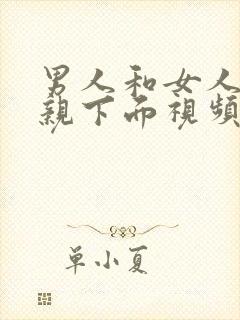 男人和女人
親下而視頻
单小夏